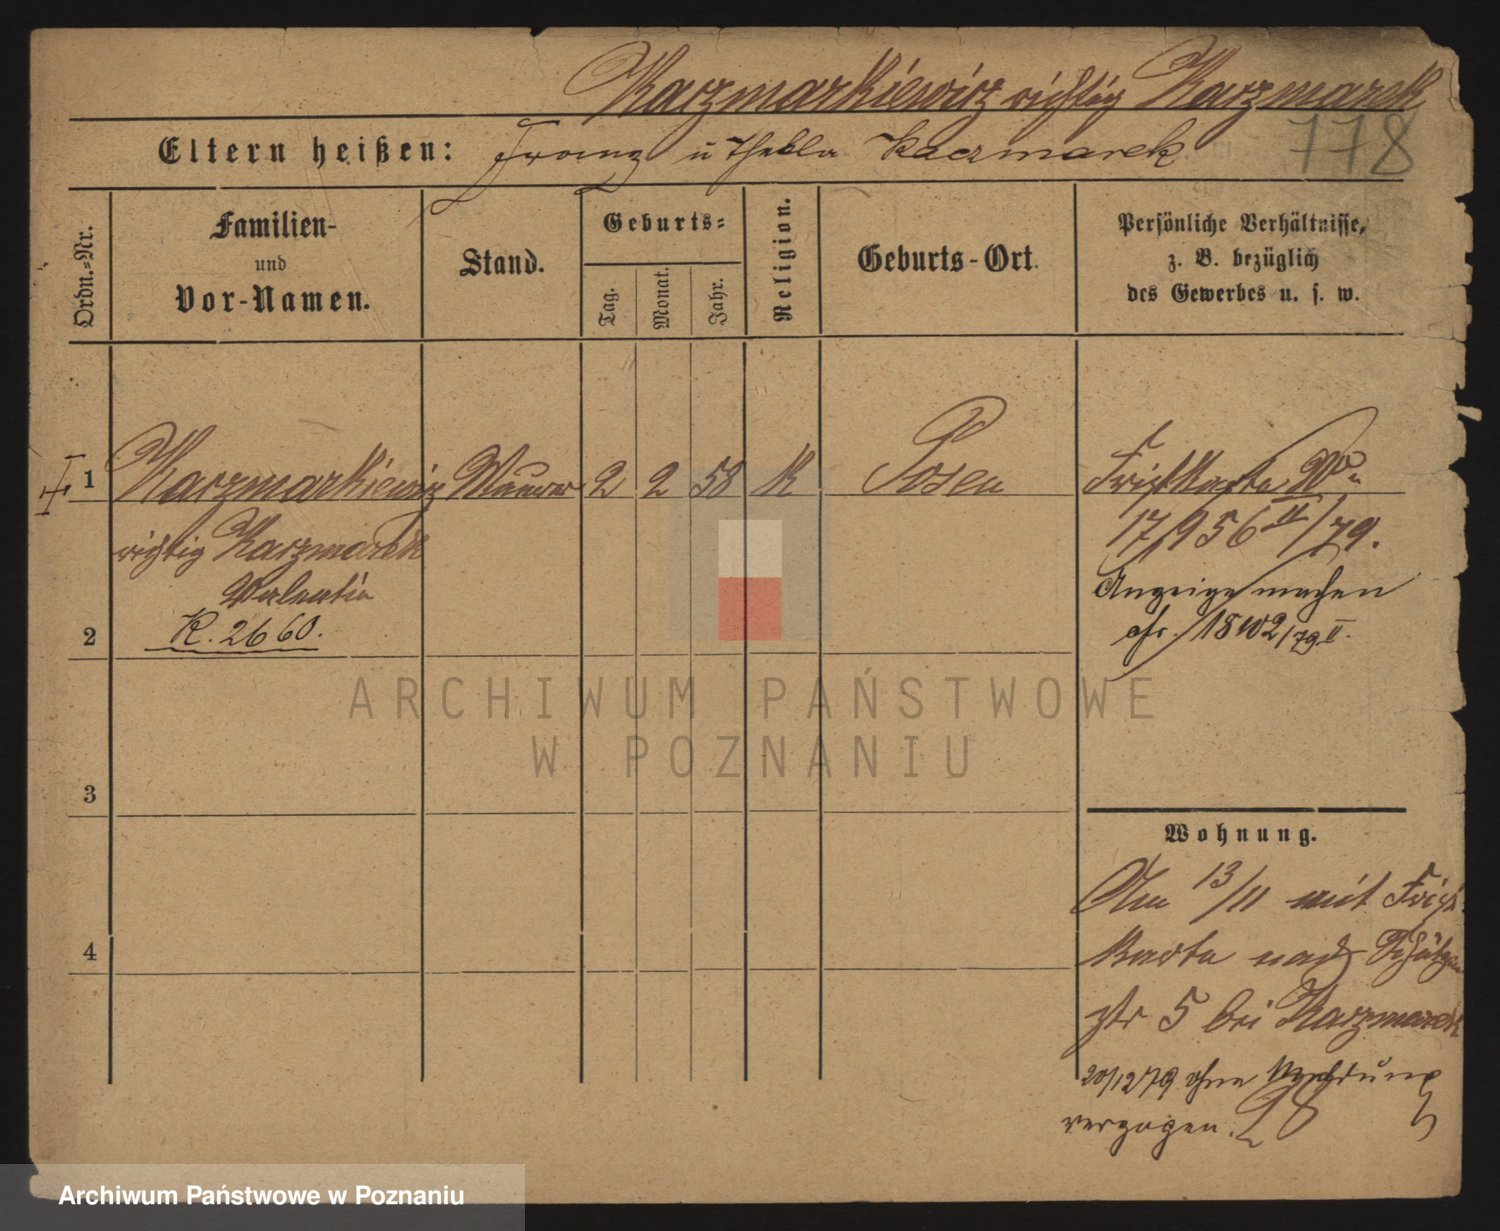 Kaczmarkiewicz richtig Kaczmarek
778
Eltern heißen: Franz u Thekla Kaczmarek
Ordn.-Nr.
Familien-
und
Vor-Namen.
Stand.
Geburts-
Tag.
Monat.
Jahr.
Religion.
Geburts-Ort.
Persönliche Verhältnisse,
z. B. bezüglich
des Gewerbes u. s. w.
1 Kaczmarkiewicz Maurer 2 2 58 K Posen
richtig Kaczmarek
Valentin
K. 2660.
Fristkarte
17,956 II/79.
Anzeige machen
cfr. 18402/79 II.
2
3
4
Wohnung.
Am 13/11 mit Frist
Karte nach Schützen
str 5 bei Kaczmarek
20/12 79 ohne
verzogen.
ARCHIWUM PAŃSTWOWE
W POZNANIU
Archiwum Państwowe w Poznaniu